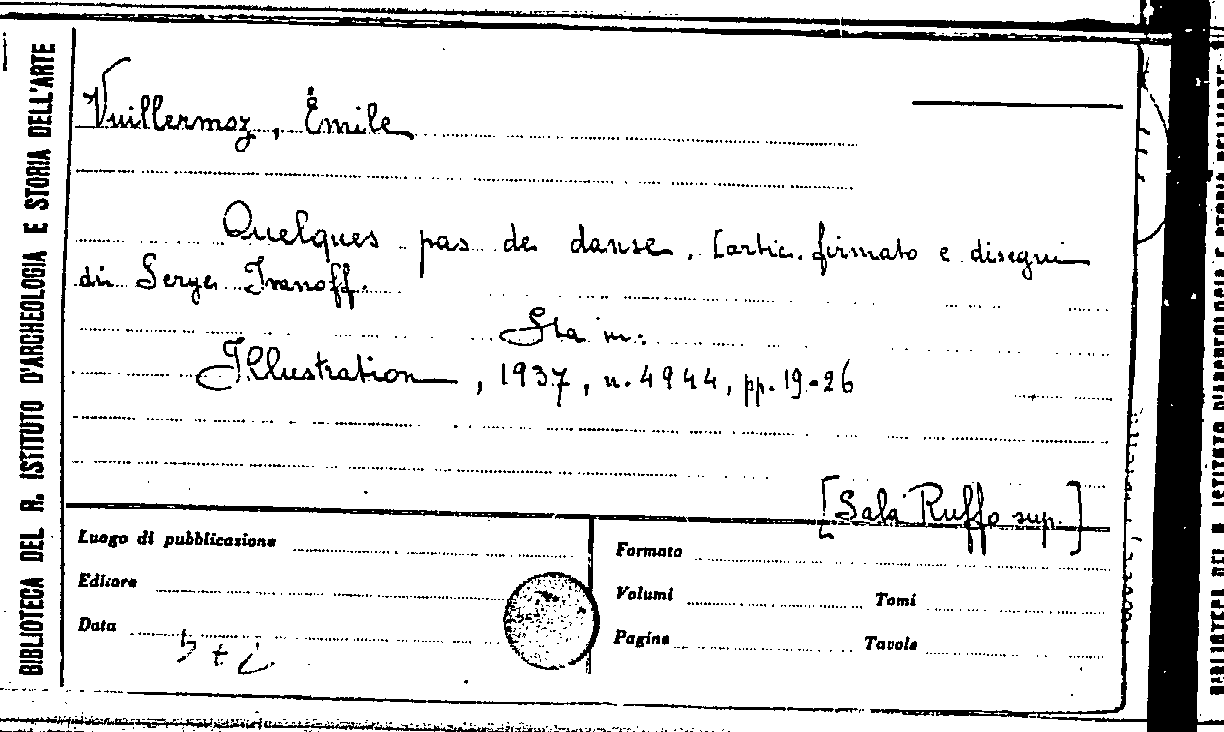 BIBLIOTECA DEL R. ISTITUTO D'ARCHEOLOGIA E STORIA DELL'ARTE
Vuillermoz, Émile
Quelques pas de danse. [artic. firmato e disegni
di Serge Ivanoff.
Sta in:
Illustration, 1937, n. 4944, pp. 19-26
[Sala Ruffo sup.]
Luogo di pubblicazione
Editore
Data
Formato
Volumi
Tomi
Pagine
Tavole